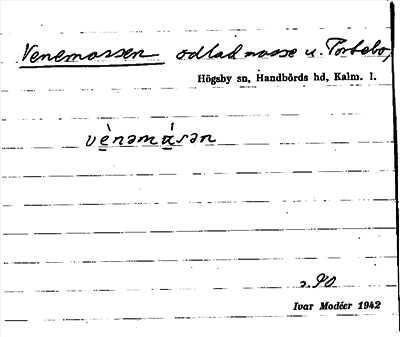 Venemossen odlad mosse u. Torbebo,
Högsby sn, Handbörds hd, Kalm. l.
vènəmásən
s. 90
Ivar Modéer 1942